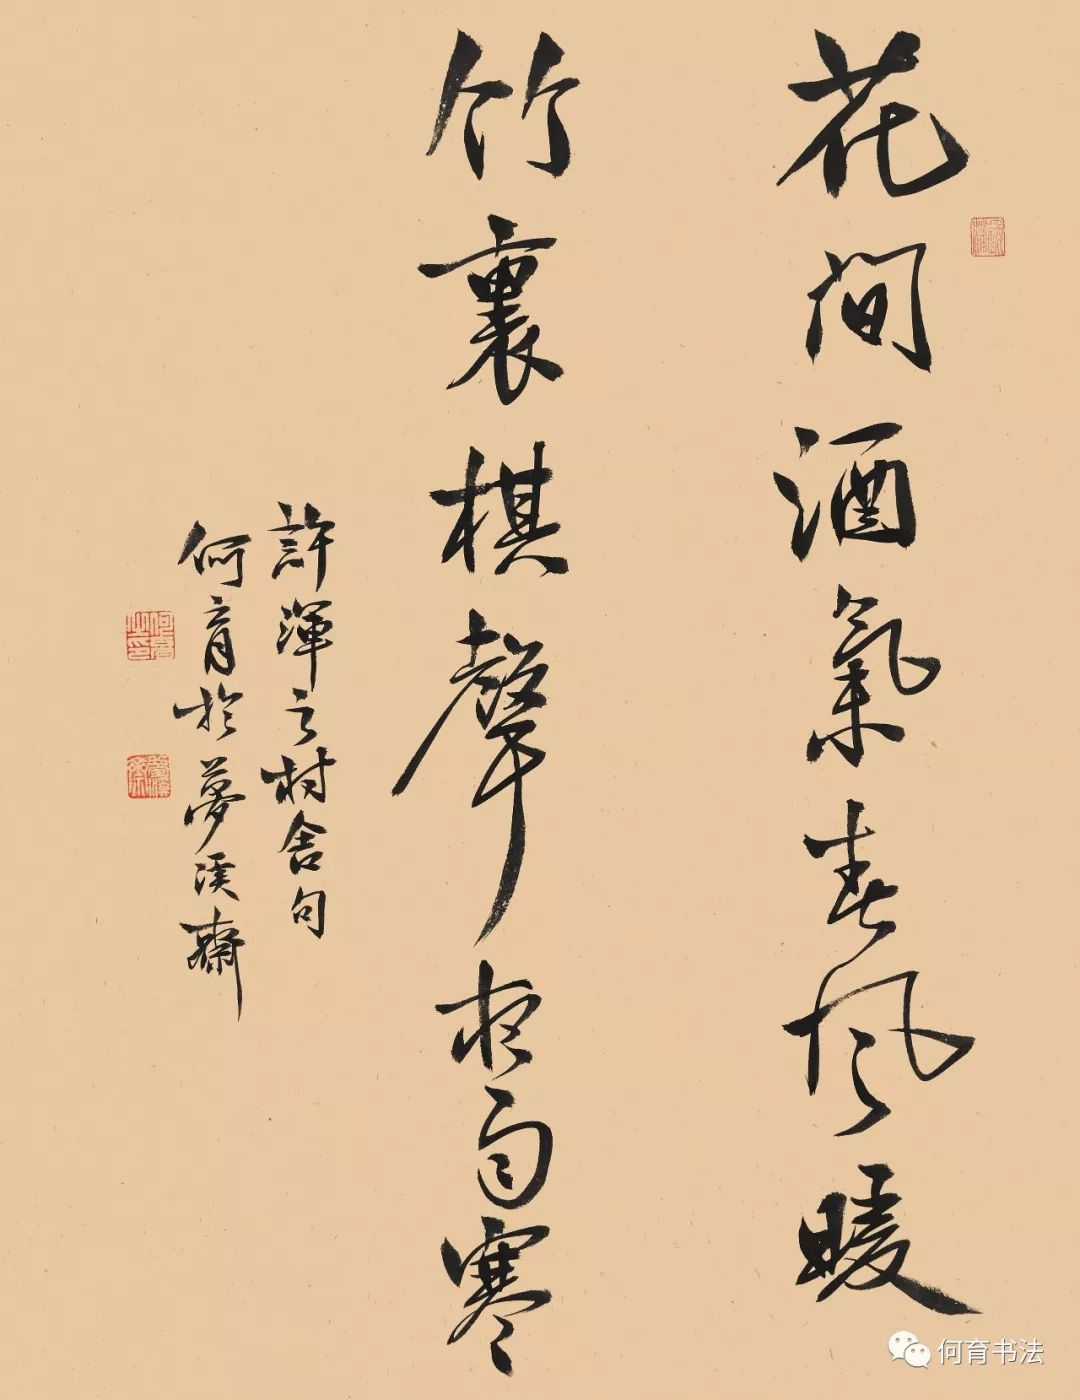 花間酒氣春風暖
竹裏棋聲夜雨寒
許渾之村舍句
何育於夢溪齋
何育书法